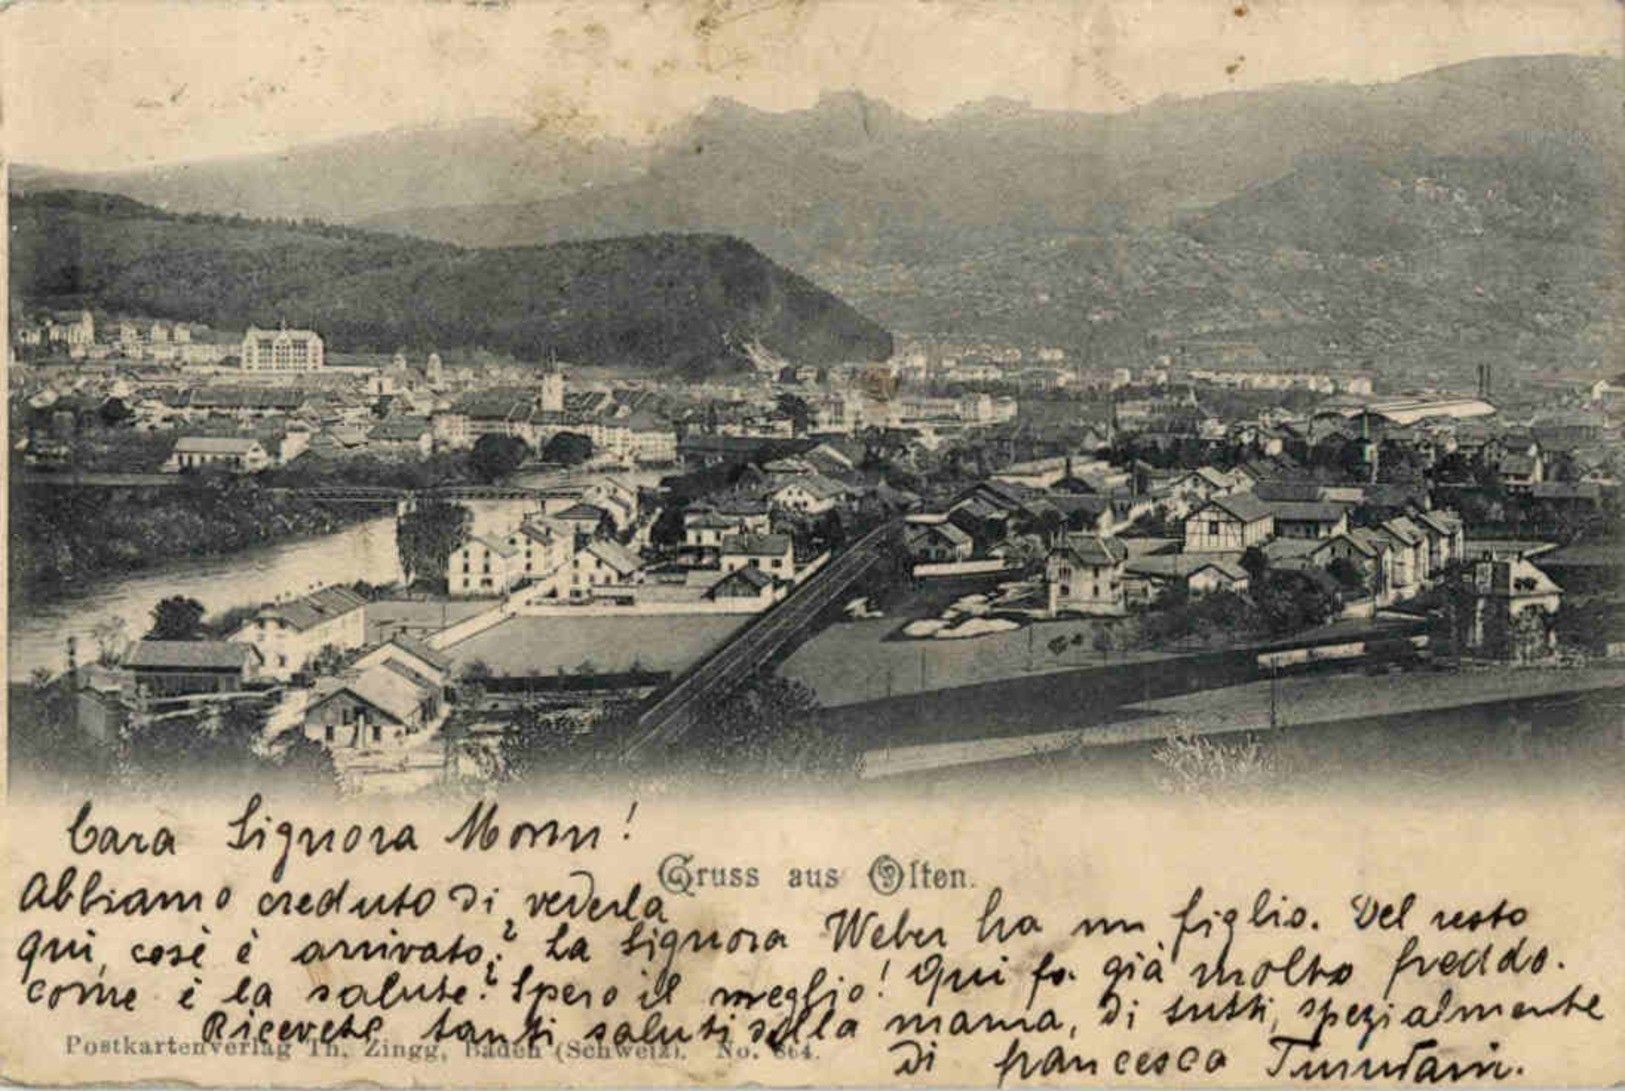 Cara Signora
Gruss aus Olten.
Abbiamo creduto di vederla
qui, cosè è arrivato? La Signora Weber ha un figlio. Del resto
come è la salute? Spero il meglio! Qui fa già molto freddo.
Ricevete tanti saluti della mama, di tutti, spezialmente
di francesca
Postkartenverlag Th. Zingg, Baden (Schweiz). No. 864.